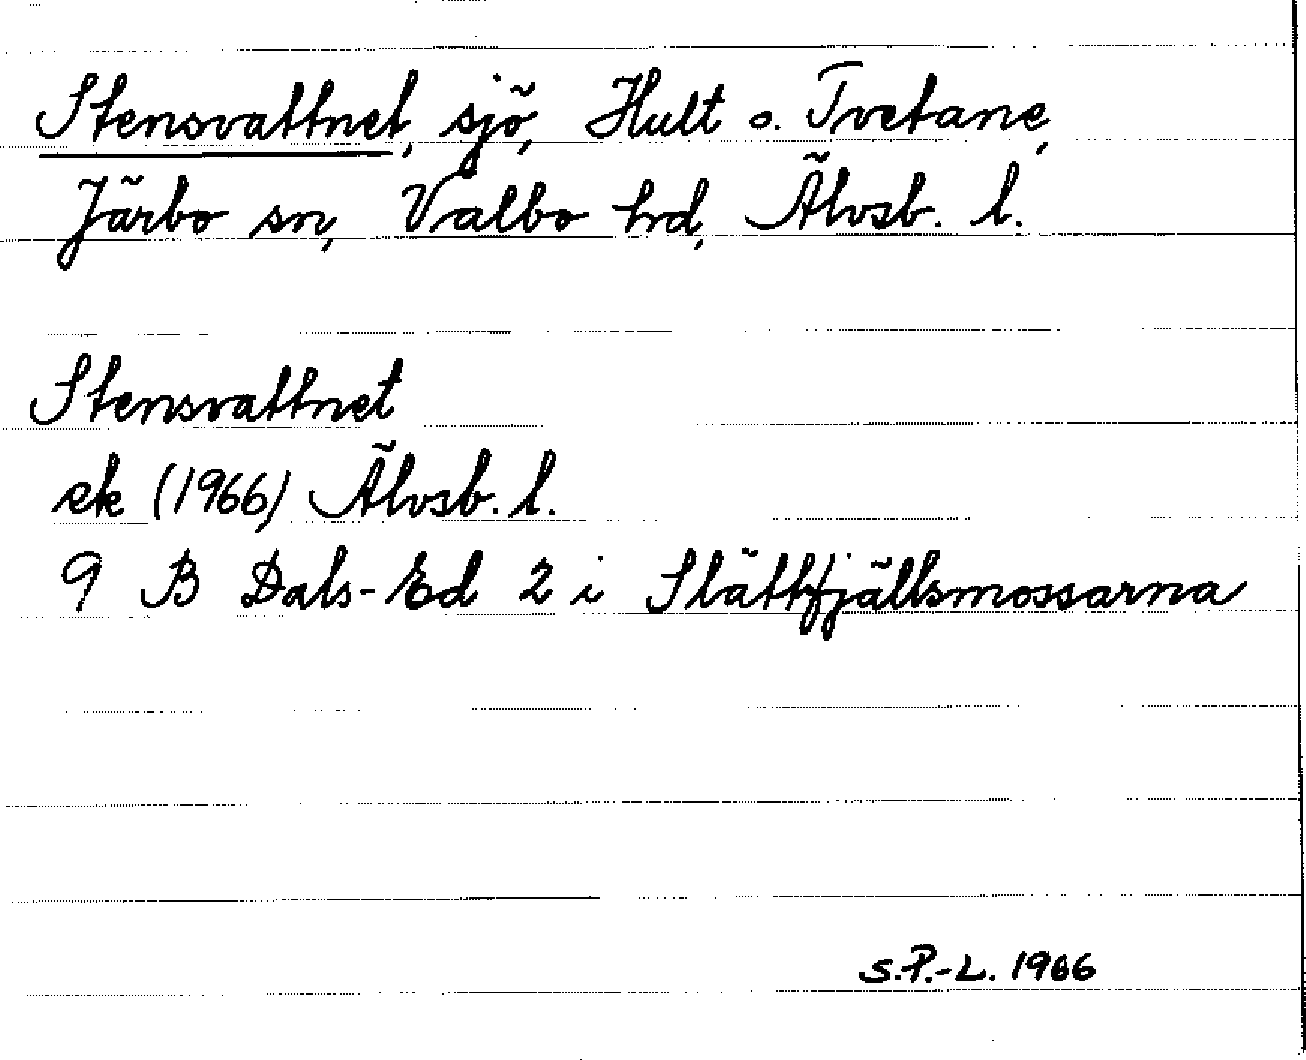 Stensvattnet, sjö, Hult o. Tvetane,
Järbo sn, Valbo hd, Älvsb. l.
Stensvattnet
ek (1966) Älvsb. l.
9 B Dals-Ed 2 i Slättfjällsmossarna
S.P.-L. 1966